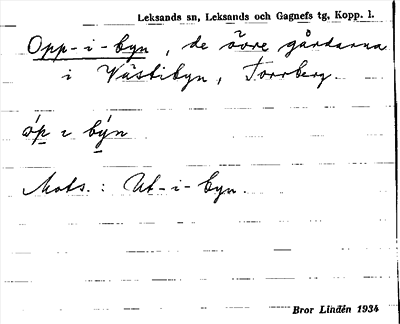 Leksands sn, Leksands och Gagnefs tg, Kopp. l.
Opp-i-byn, de övre gårdarna
i Västibyn, Torrberg.
óp ɩ býn
Mots.: Ut-i-byn.
Bror Lindén 1934